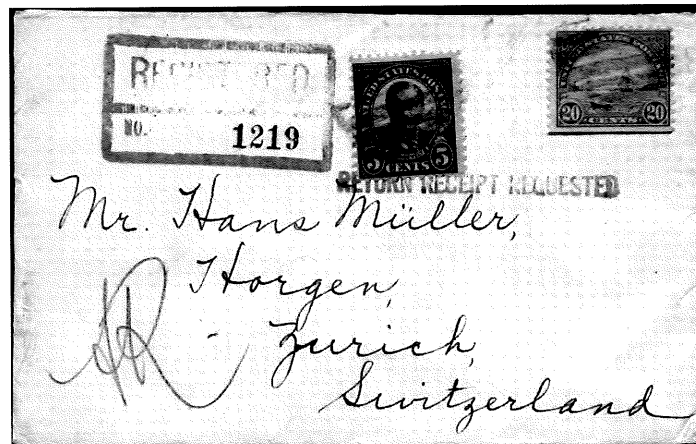 REGISTERED
NO. 1219
UNITED STATES POSTAGE
5 CENTS 5
UNITED STATES POSTAGE
20 CENTS 20
RETURN RECEIPT REQUESTED
Mr. Hans Müller,
Horgen,
AR
Zurich,
Switzerland